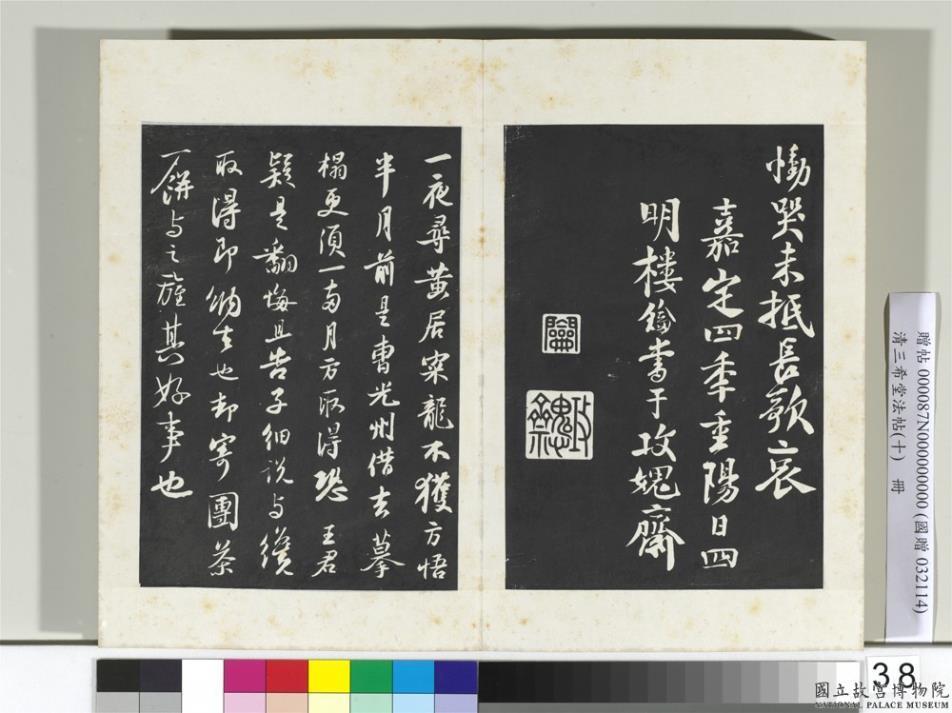 慟哭未抵長歌哀
嘉定四季重陽日四
明樓鑰書于攻媿齋
攻媿
一夜尋黃居寀龍不獲方悟
半月前是曹光州借去摹
榻更須一兩月方取得恐王君
疑是翻悔且告子細說与纔
取得即納去也却寄團茶
一餅与之旌其好事也
贈帖 000087N000000000 (國贈 032114)
清三希堂法帖(十) 冊
38
國立故宮博物院
NATIONAL PALACE MUSEUM